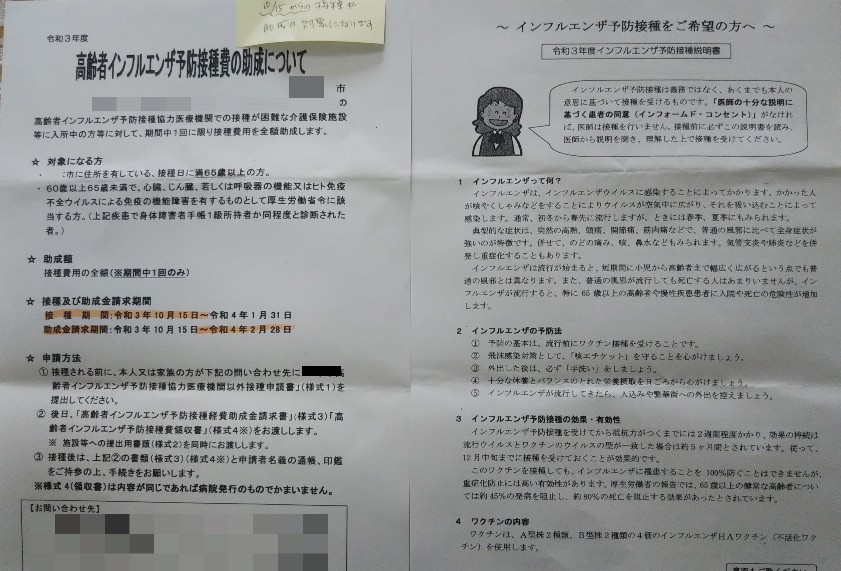 10/15からの接種が
助成の対象になります
令和3年度
高齢者インフルエンザ予防接種費の助成について
市
の
高齢者インフルエンザ予防接種協力医療機関での接種が困難な介護保険施設
等に入所中の方等に対して、期間中1回に限り接種費用を全額助成します。
☆ 対象になる方
・ 市に住所を有している、接種日に満65歳以上の方。
・60歳以上65歳未満で、心臓、じん臓、若しくは呼吸器の機能又はヒト免疫
不全ウイルスによる免疫の機能障害を有するものとして厚生労働省令に該
当する方。(上記疾患で身体障害者手帳1級所持者か同程度と診断された
者。)
☆ 助成額
接種費用の全額(※期間中1回のみ)
☆ 接種及び助成金請求期間
接 種 期 間:令和3年10月15日~令和4年1月31日
助成金請求期間:令和3年10月15日~令和4年2月28日
☆ 申請方法
① 接種される前に、本人又は家族の方が下記の問い合わせ先に
齢者インフルエンザ予防接種協力医療機関以外接種申請書」(様式1)を
提出してください。
② 後日、「高齢者インフルエンザ予防接種経費助成金請求書」(様式3)「高
齢者インフルエンザ予防接種費領収書」(様式4※)をお渡しします。
※ 施設等への提出用書類(様式2)を同時にお渡しします。
③ 接種後は、上記②の書類(様式3)(様式4※)と申請者名義の通帳、印鑑
をご持参の上、手続きをお願いします。
※様式4(領収書)は内容が同じであれば病院発行のものでかまいません。
【お問い合わせ先】
~ インフルエンザ予防接種をご希望の方へ ~
令和3年度インフルエンザ予防接種説明書
インフルエンザ予防接種は義務ではなく、あくまでも本人の
意思に基づいて接種を受けるものです。「医師の十分な説明に
基づく患者の同意(インフォームド・コンセント)」がなけれ
ば、医師は接種を行いません。接種前に必ずこの説明書を読み、
医師から説明を聞き、理解した上で接種を受けてください。
1 インフルエンザって何?
インフルエンザは、インフルエンザウイルスに感染することによってかかります。かかった人
が咳やくしゃみなどをすることによりウイルスが空気中に広がり、それを吸い込むことによって
感染します。通常、初冬から春先に流行しますが、ときには春季、夏季にもみられます。
典型的な症状は、突然の高熱、頭痛、関節痛、筋肉痛などで、普通の風邪に比べて全身症状が
強いのが特徴です。併せて、のどの痛み、咳、鼻水などもみられます。気管支炎や肺炎などを併
発し重症化することもあります。
インフルエンザは流行が始まると、短期間に小児から高齢者まで幅広く広がるという点でも普
通の風邪とは異なります。また、普通の風邪が流行しても死亡する人はあまりいませんが、イン
フルエンザが流行すると、特に65歳以上の高齢者や慢性疾患患者に入院や死亡の危険性が増加
します。
2 インフルエンザの予防法
① 予防の基本は、流行前にワクチン接種を受けることです。
② 飛沫感染対策として、「咳エチケット」を守ることを心がけましょう。
③ 外出した後は、必ず「手洗い」をしましょう。
④ 十分な休養とバランスのとれた栄養摂取を日ごろから心がけましょう。
⑤ インフルエンザが流行してきたら、人込みや繁華街への外出を控えましょう。
3 インフルエンザ予防接種の効果・有効性
インフルエンザ予防接種を受けてから抵抗力がつくまでには2週間程度かかり、効果の持続は
流行ウイルスとワクチンのウイルスの型が一致した場合は約5ヶ月間とされています。従って、
12月中旬までに接種を受けておくことが効果的です。
このワクチンを接種しても、インフルエンザに罹患することを100%防ぐことはできませんが、
重症化防止には高い有効性があります。厚生労働省の報告では、65歳以上の健常な高齢者につい
ては約45%の発病を阻止し、約80%の死亡を阻止する効果があったとされています。
4 ワクチンの内容
ワクチンは、A型株2種類、B型株2種類の4価のインフルエンザHAワクチン(不活化ワク
チン)を使用します。